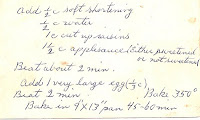 Add ½ c soft shortening
½ c water
1 c cut up raisins
1½ c applesauce (Either sweetened
or not sweetened)
Beat about 2 min.
Add 1 very large egg (⅓ c)
Beat 2 min
Bake 350°
Bake in 9"X13" pan 45-60 min